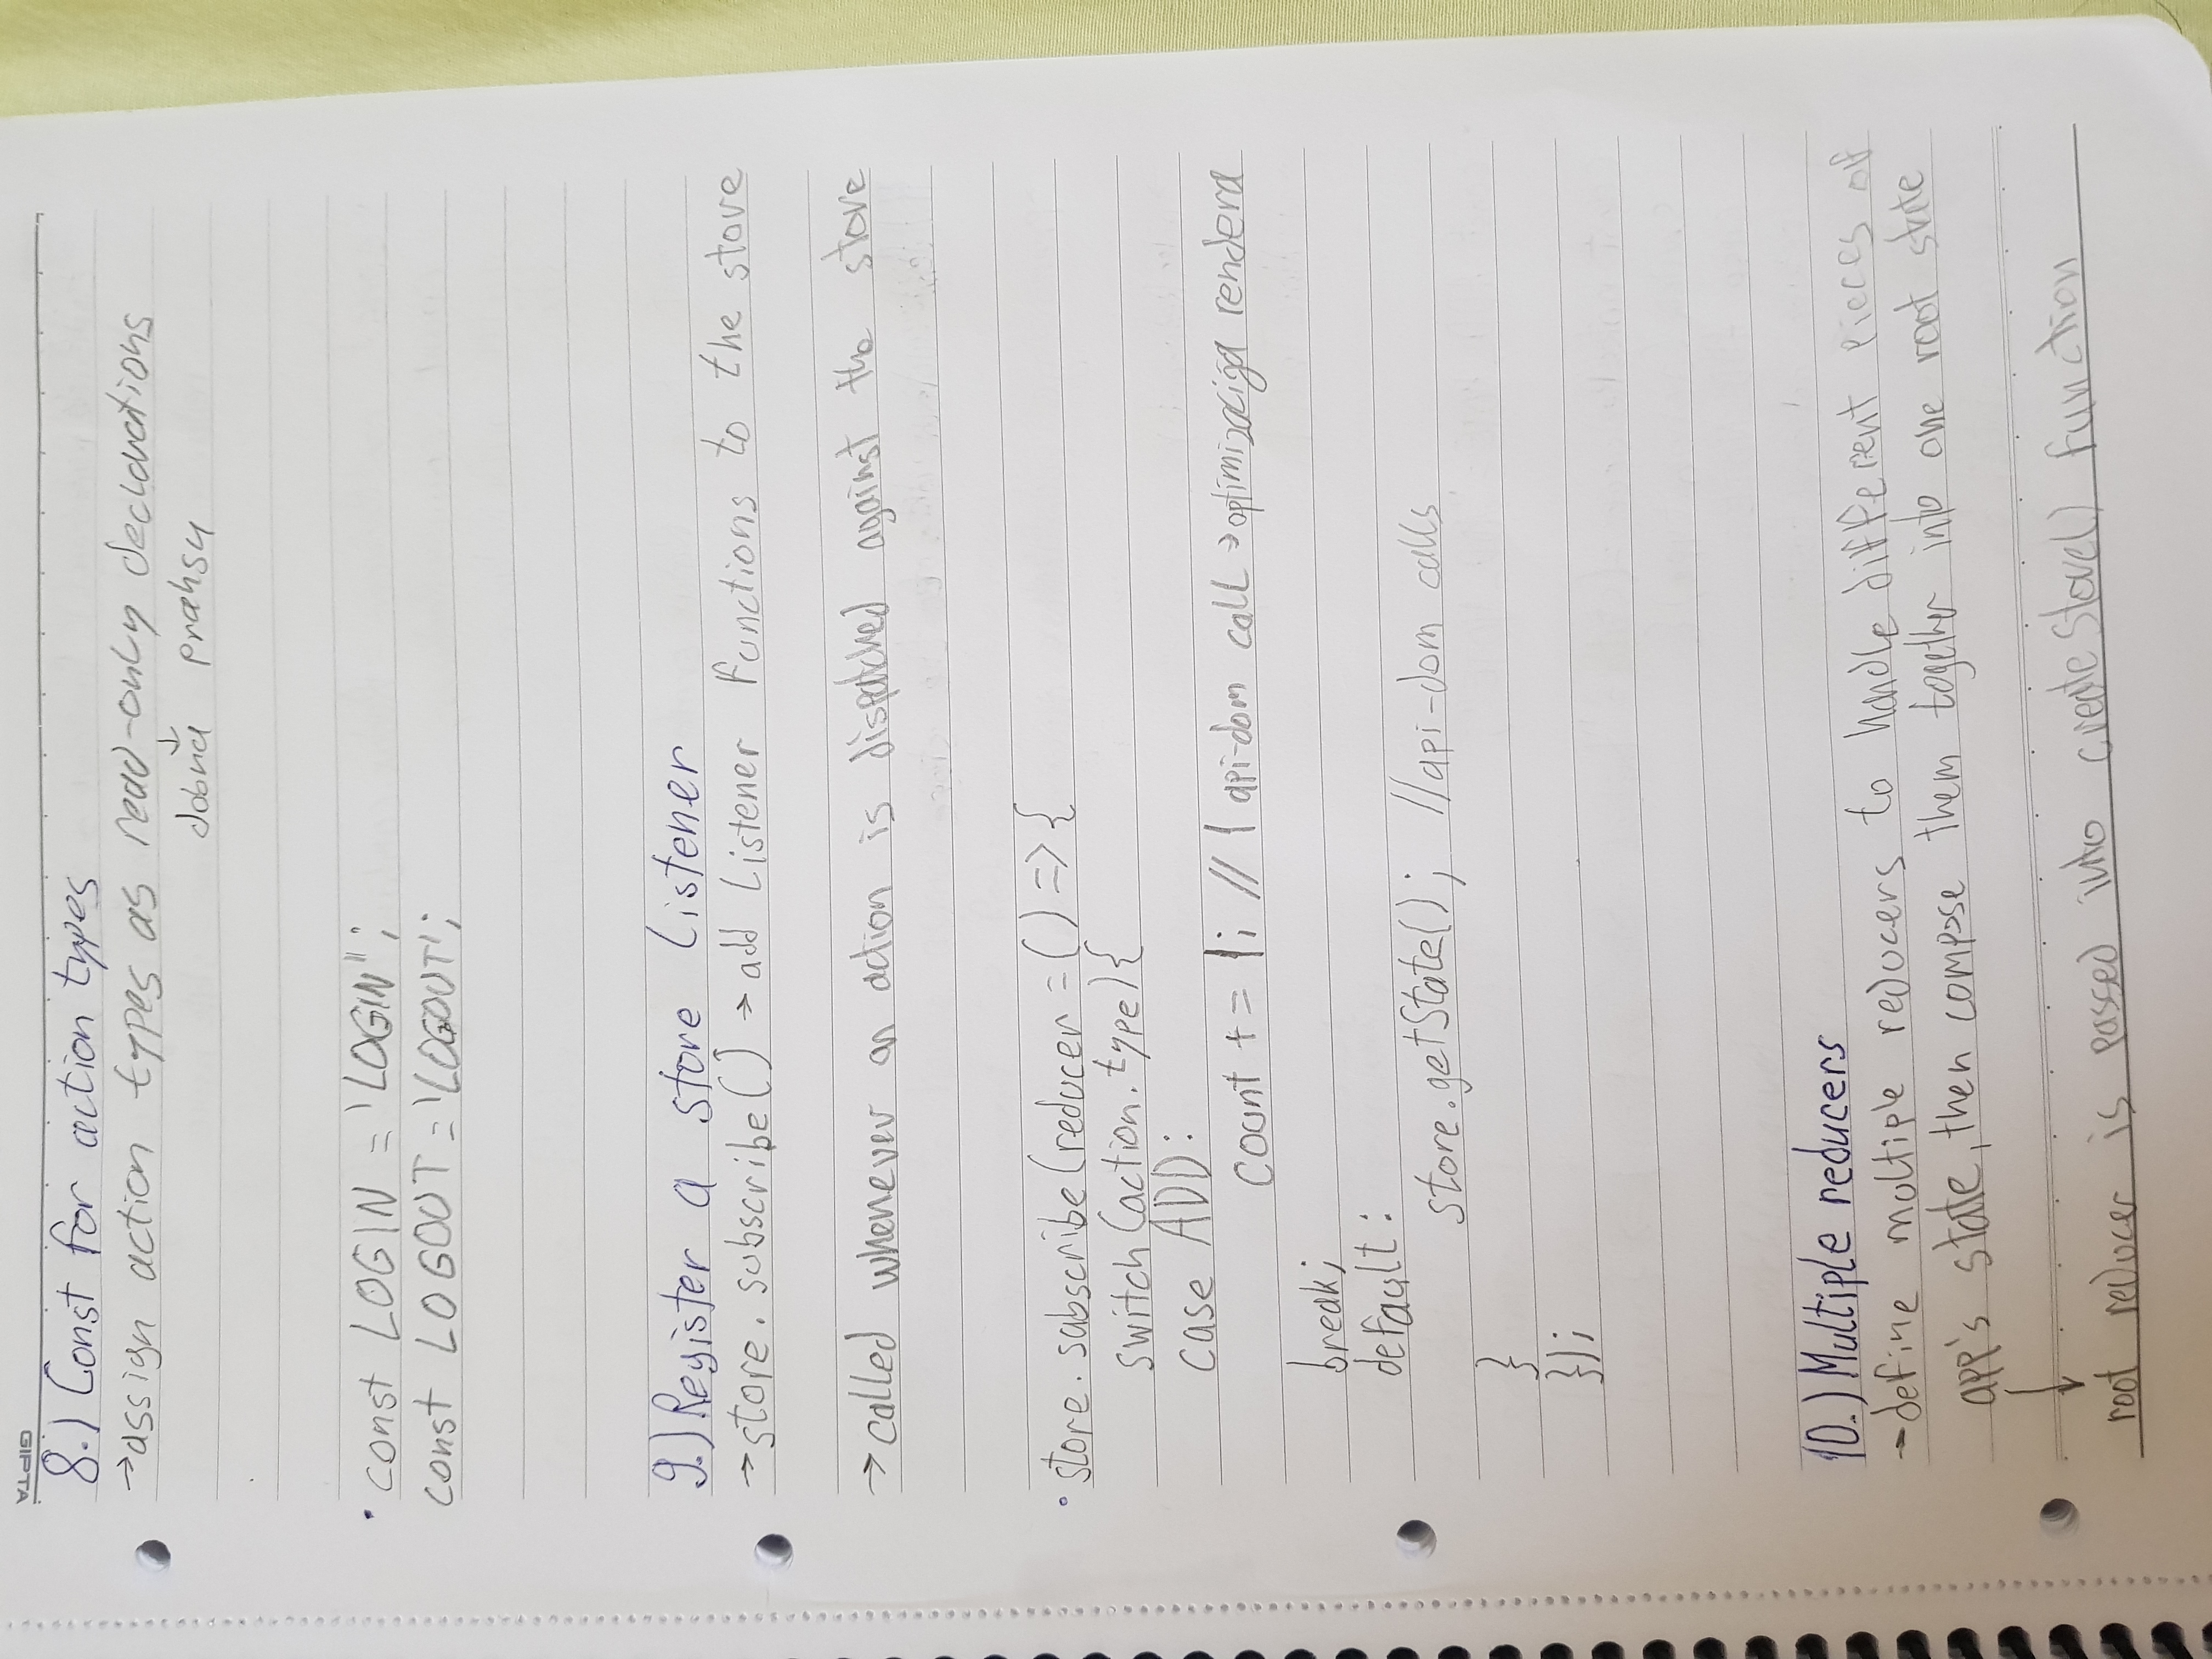 GIPTA
8.) Const for action types
→assign action types as read-only declarations
↓
dobra praksu
• const LOGIN = 'LOGIN";
const LOGOUT = 'LOGOUT';
9.) Register a store listener
→store.subscribe() → add listener functions to the store
→ called whenever an action is dispatched against the store
• store.subscribe(reducer = () => {
switch (action.type) {
case ADD:
count += 1; // 1 api-dom call → optimizacija rendera
break;
default:
store.getState(); //api-dom calls
}
});
10.) Multiple reducers
→define multiple reducers to handle different pieces of
app's state, then compose them together into one root state
↓
root reducer is passed into createStore() function